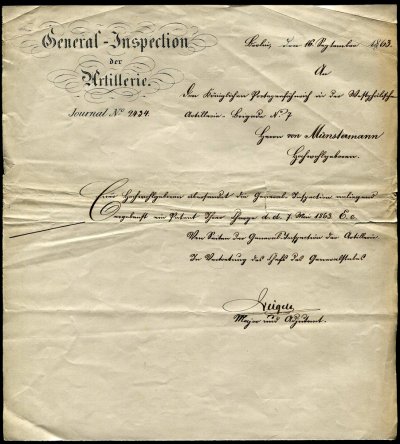 General-Inspection
der
Artillerie.
Journal No 2434.
Berlin, den 16 September 1863.
An
den Königlichen Portepeefähnrich in der Westphälischen
Artillerie-Brigade No 7
Herrn von Münstermann
Hochwohlgeboren.
Euer Hochwohlgeboren übersendet die General-Inspection anliegend
ergebenst ein Patent Ihrer Charge d. d. 7 Mai 1863
Von Seiten der General-Inspection der Artillerie.
In Vertretung des Chefs des Generalstabes
Major und Adjutant.